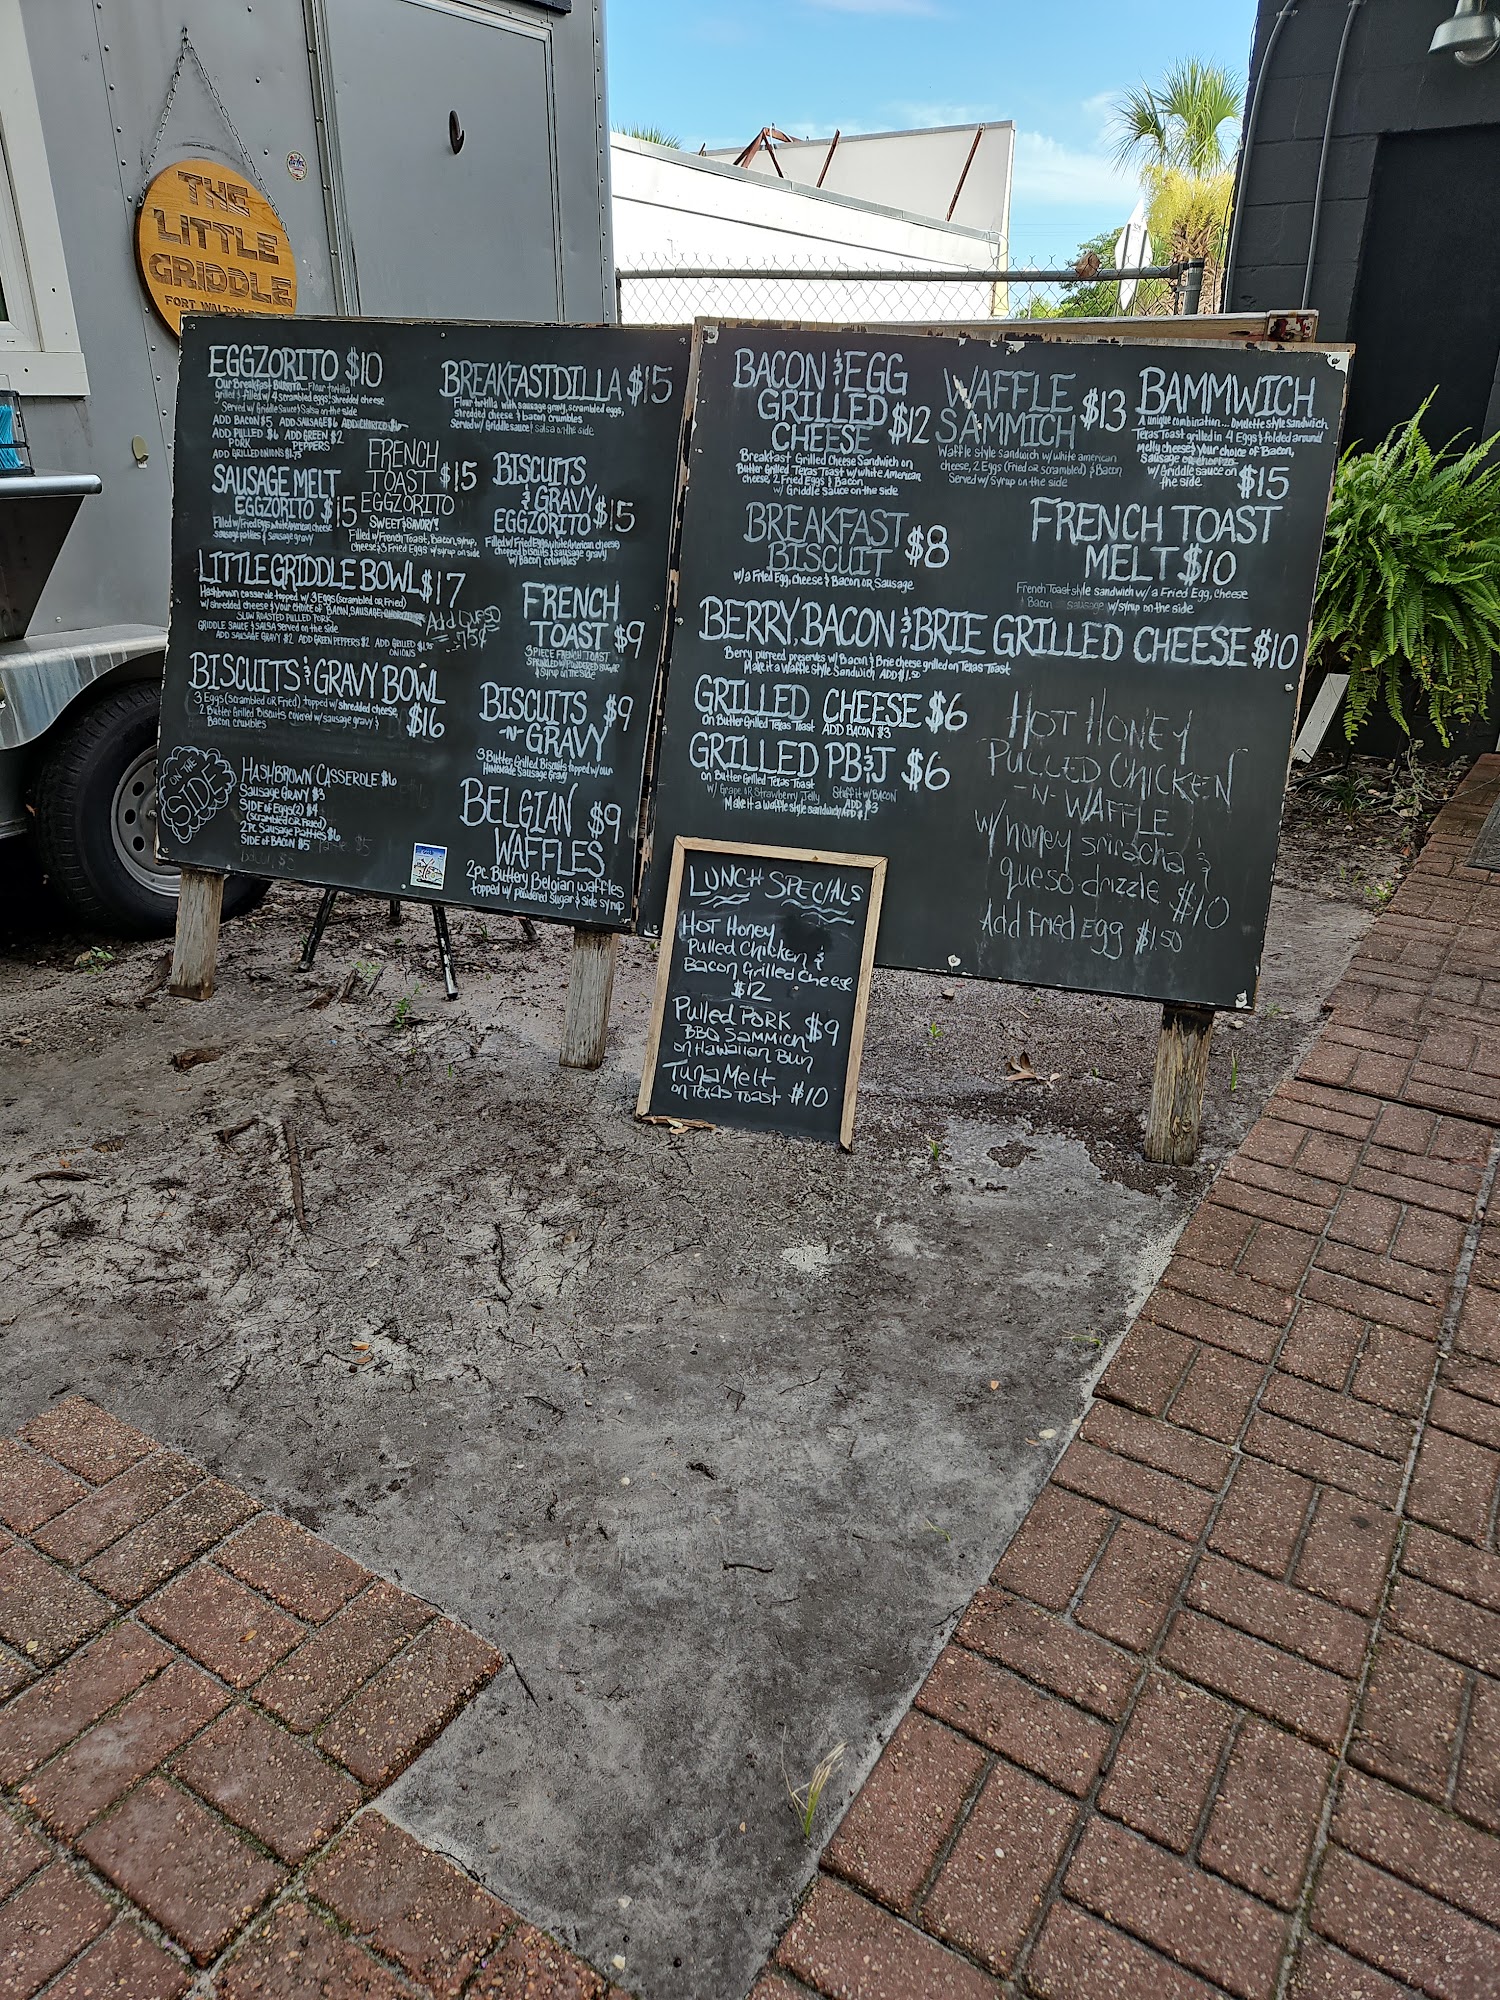 THE
LITTLE
GRIDDLE
FORT WALTON
EGGZORITO $10
Our Breakfast Burrito... Flour tortilla
grilled & filled w/ 4 scrambled eggs, shredded cheese
Served w/ Griddle Sauce & Salsa on the side
ADD BACON $5 ADD SAUSAGE $6 ADD CHORIZO $6
ADD PULLED $6 ADD GREEN $2
PORK PEPPERS
ADD GRILLED ONIONS $1.75
BREAKFASTDILLA $15
Flour tortilla with sausage gravy, scrambled eggs,
shredded cheese & bacon crumbles
Served w/ Griddle sauce & salsa on the side
SAUSAGE MELT
EGGZORITO $15
Filled w/ Fried Eggs, white American cheese
sausage patties & sausage gravy
FRENCH
TOAST $15
EGGZORITO
SWEET & SAVORY!
Filled w/ French Toast, Bacon, syrup,
cheese & 3 Fried Eggs w/ syrup on side
BISCUITS
& GRAVY
EGGZORITO $15
Filled w/ Fried Eggs, white American cheese
chopped biscuits & sausage gravy
w/ Bacon crumbles
LITTLE GRIDDLE BOWL $17
Hashbrown casserole topped w/ 3 Eggs (scrambled OR Fried)
w/ shredded cheese & your choice of BACON, SAUSAGE,
SLOW ROASTED PULLED PORK
GRIDDLE SAUCE & SALSA served on the side
ADD SAUSAGE GRAVY $2 ADD GREEN PEPPERS $2 ADD GRILLED $1.75
ONIONS
Add Queso
.75¢
FRENCH
TOAST $9
3 PIECE FRENCH TOAST
SPRINKLED W/ POWDERED SUGAR
& Syrup on the side
BISCUITS & GRAVY BOWL
3 Eggs (Scrambled OR Fried) topped w/ shredded cheese,
2 Butter Grilled Biscuits covered w/ sausage gravy &
Bacon crumbles
$16
BISCUITS $9
-N-
GRAVY
3 Butter Grilled Biscuits topped w/ our
Homemade Sausage Gravy
ON THE
SIDE
HASHBROWN CASSEROLE $6
Sausage GRAVY $3
SIDE of Eggs (2) $4
(Scrambled OR Fried)
2 PC Sausage Patties $6
SIDE of BACON $5
BELGIAN $9
WAFFLES
2 pc. Buttery Belgian waffles
topped w/ powdered sugar & side syrup
BACON & EGG
GRILLED $12
CHEESE
Breakfast Grilled Cheese Sandwich on
Butter Grilled Texas Toast w/ white American
cheese, 2 Fried Eggs & Bacon
w/ Griddle sauce on the side
WAFFLE
SAMMICH $13
Waffle style sandwich w/ white american
cheese, 2 Eggs (Fried or scrambled) & Bacon
Served w/ Syrup on the side
BAMMWICH
A unique combination... Omelette style sandwich
Texas Toast grilled in 4 Eggs & folded around
Melty cheese & your choice of Bacon,
Sausage or chorizo
w/ Griddle sauce on
the side $15
BREAKFAST
BISCUIT $8
w/ a Fried Egg, cheese & Bacon or Sausage
FRENCH TOAST
MELT $10
French Toast style sandwich w/ a Fried Egg, cheese
& Bacon sausage w/ syrup on the side
BERRY, BACON & BRIE GRILLED CHEESE $10
Berry purreed preserves w/ Bacon & Brie cheese grilled on Texas Toast
Make it a Waffle Style Sandwich ADD $1.50
GRILLED CHEESE $6
on Butter Grilled Texas Toast ADD BACON $3
GRILLED PB&J $6
on Butter Grilled Texas Toast
w/ Grape or Strawberry Jelly Stuff it w/ BACON
ADD $3
Make it a waffle style sandwich ADD $1
HOT HONEY
PULLED CHICKEN
-N- WAFFLE
w/ honey sriracha &
queso drizzle $10
Add Fried Egg $1.50
LUNCH SPECIALS
HOT Honey
Pulled Chicken &
Bacon Grilled Cheese
$12
Pulled PORK $9
BBQ Sammich
on Hawaiian Bun
Tuna Melt
on Texas Toast $10